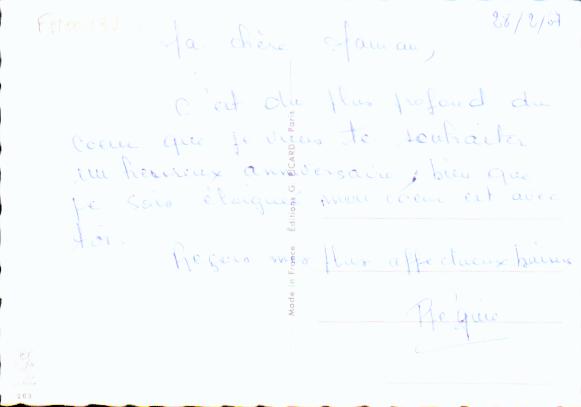 28/2/07
Ma chère Maman,
C'est du plus profond du
coeur que je viens te souhaiter
un heureux anniversaire, bien que
je sois éloignée mon coeur est avec
toi.
Reçois mes plus affectueux baisers
Made in France Éditions G. PICARD - Paris
203